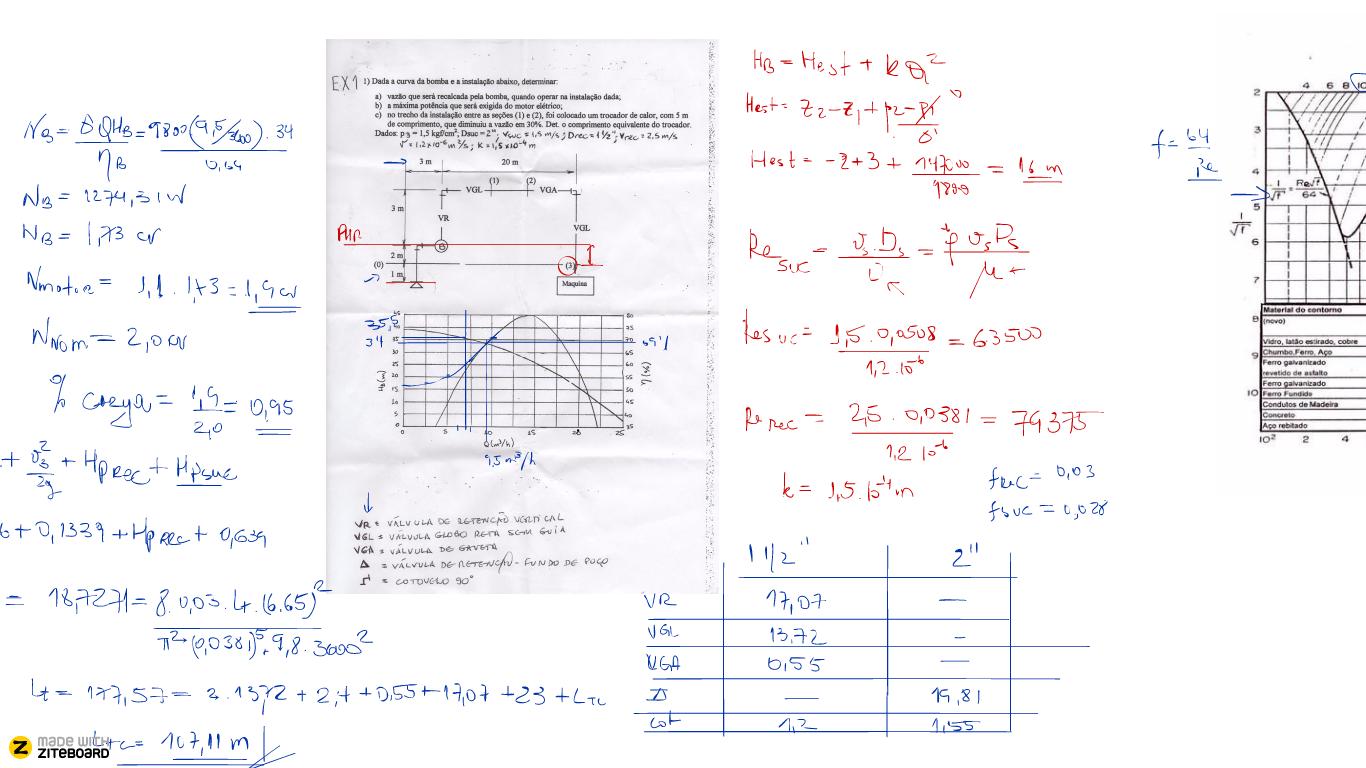 EX1 1) Dada a curva da bomba e a instalação abaixo, determinar:
a) vazão que será recalcada pela bomba, quando operar na instalação dada;
b) a máxima potência que será exigida do motor elétrico;
c) no trecho da instalação entre as seções (1) e (2), foi colocado um trocador de calor, com 5 m
de comprimento, que diminuiu a vazão em 30%. Det. o comprimento equivalente do trocador.
Dados: p3 = 1,5 kgf/cm², Dsuc = 2"; vsuc = 1,5 m/s; Drec = 1 1/2"; vrec = 2,5 m/s
ν = 1,2x10⁻⁶ m²/s; K = 1,5x10⁻⁴ m
3 m 20 m
(1) (2)
VGL VGA
3 m
VR
VGL
PHR
B
2 m
(0) (3)
1 m
Maquina
35,5
34
69%
HB (m)
0 5 10 15 20 25
Q (m³/h)
9,5 m³/h
VR = VÁLVULA DE RETENÇÃO VERTICAL
VGL = VÁLVULA GLOBO RETA SEM GUIA
VGA = VÁLVULA DE GAVETA
Δ = VÁLVULA DE RETENÇÃO - FUNDO DE POÇO
= COTOVELO 90°
NB = γQHB/ηB = 9800(9,5/3600).34/0,69
NB = 1274,31 W
NB = 1,73 cv
Nmotor = 1,1 . 1,73 = 1,9 cv
NNom = 2,0 cv
% carga = 1,9/2,0 = 0,95
+ v3²/2g + Hprec + Hpsuc
+ 0,1339 + Hprec + 0,639
= 18,7271 = 8.0,03.Lt.(6.65)²/π².(0,0381)⁵.9,8.3600²
Lt = 177,57 = 2.13,72 + 2,4 + 0,55 + 17,07 + 23 + LTC
LTC = 107,11 m
HB = Hest + kQ²
Hest = z2 - z1 + p2 - p1/γ 0
Hest = -2+3 + 147000/9800 = 16 m
Resuc = vs.Ds/ν = ρ vs Ds/μ
Resuc = 1,5.0,0508/1,2.10⁻⁶ = 63500
Rerec = 2,5 . 0,0381/1,2 10⁻⁶ = 79375
k = 1,5.10⁻⁴ m
frec = 0,03
fsuc = 0,028
1 1/2" 2"
VR 17,07 —
VGL 13,72 -
VGA 0,55 —
Δ — 19,81
cot 1,2 1,55
f = 64/Re
4 6 8 10
2
3
4
1/√f = Re√f/64
5
1/√f
6
7
8
9
10
Material do contorno
(novo)
Vidro, latão estirado, cobre
Chumbo,Ferro, Aço
Ferro galvanizado
revetido de asfalto
Ferro galvanizado
Ferro Fundido
Condutos de Madeira
Concreto
Aço rebitado
10² 2 4
MADE WITH
ZITEBOARD